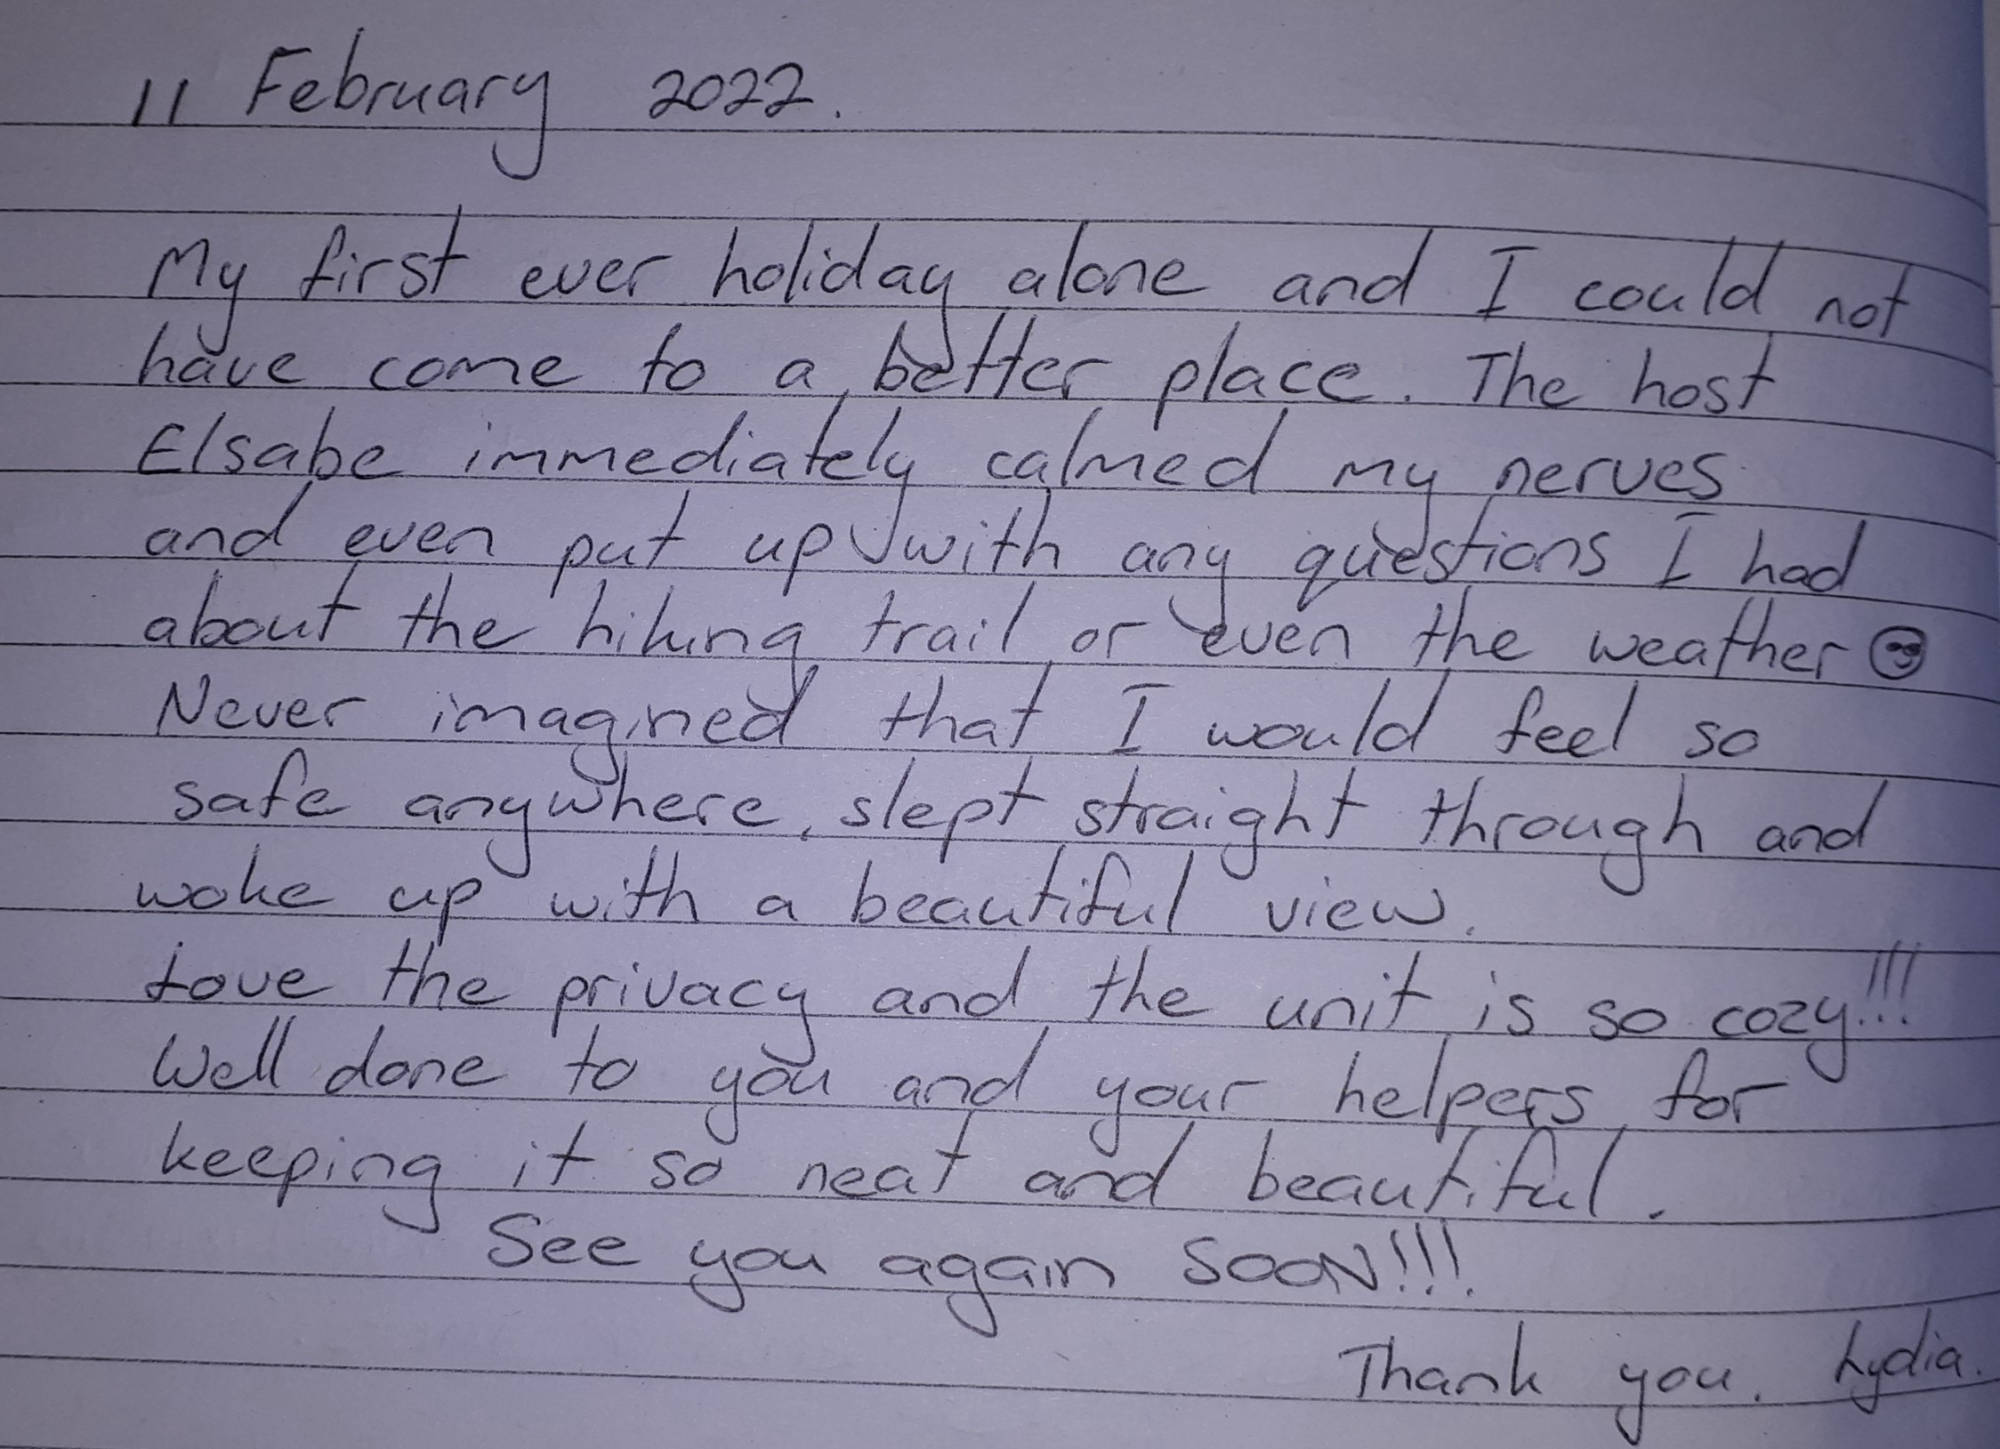 11 February 2022.
My first ever holiday alone and I could not
have come to a better place. The host
Elsabe immediately calmed my nerves
and even put up with any questions I had
about the hiking trail or even the weather 😊
Never imagined that I would feel so
safe anywhere, slept straight through and
woke up with a beautiful view.
Love the privacy and the unit is so cozy!!!
Well done to you and your helpers for
keeping it so neat and beautiful.
See you again SOON!!!
Thank you. Lydia.